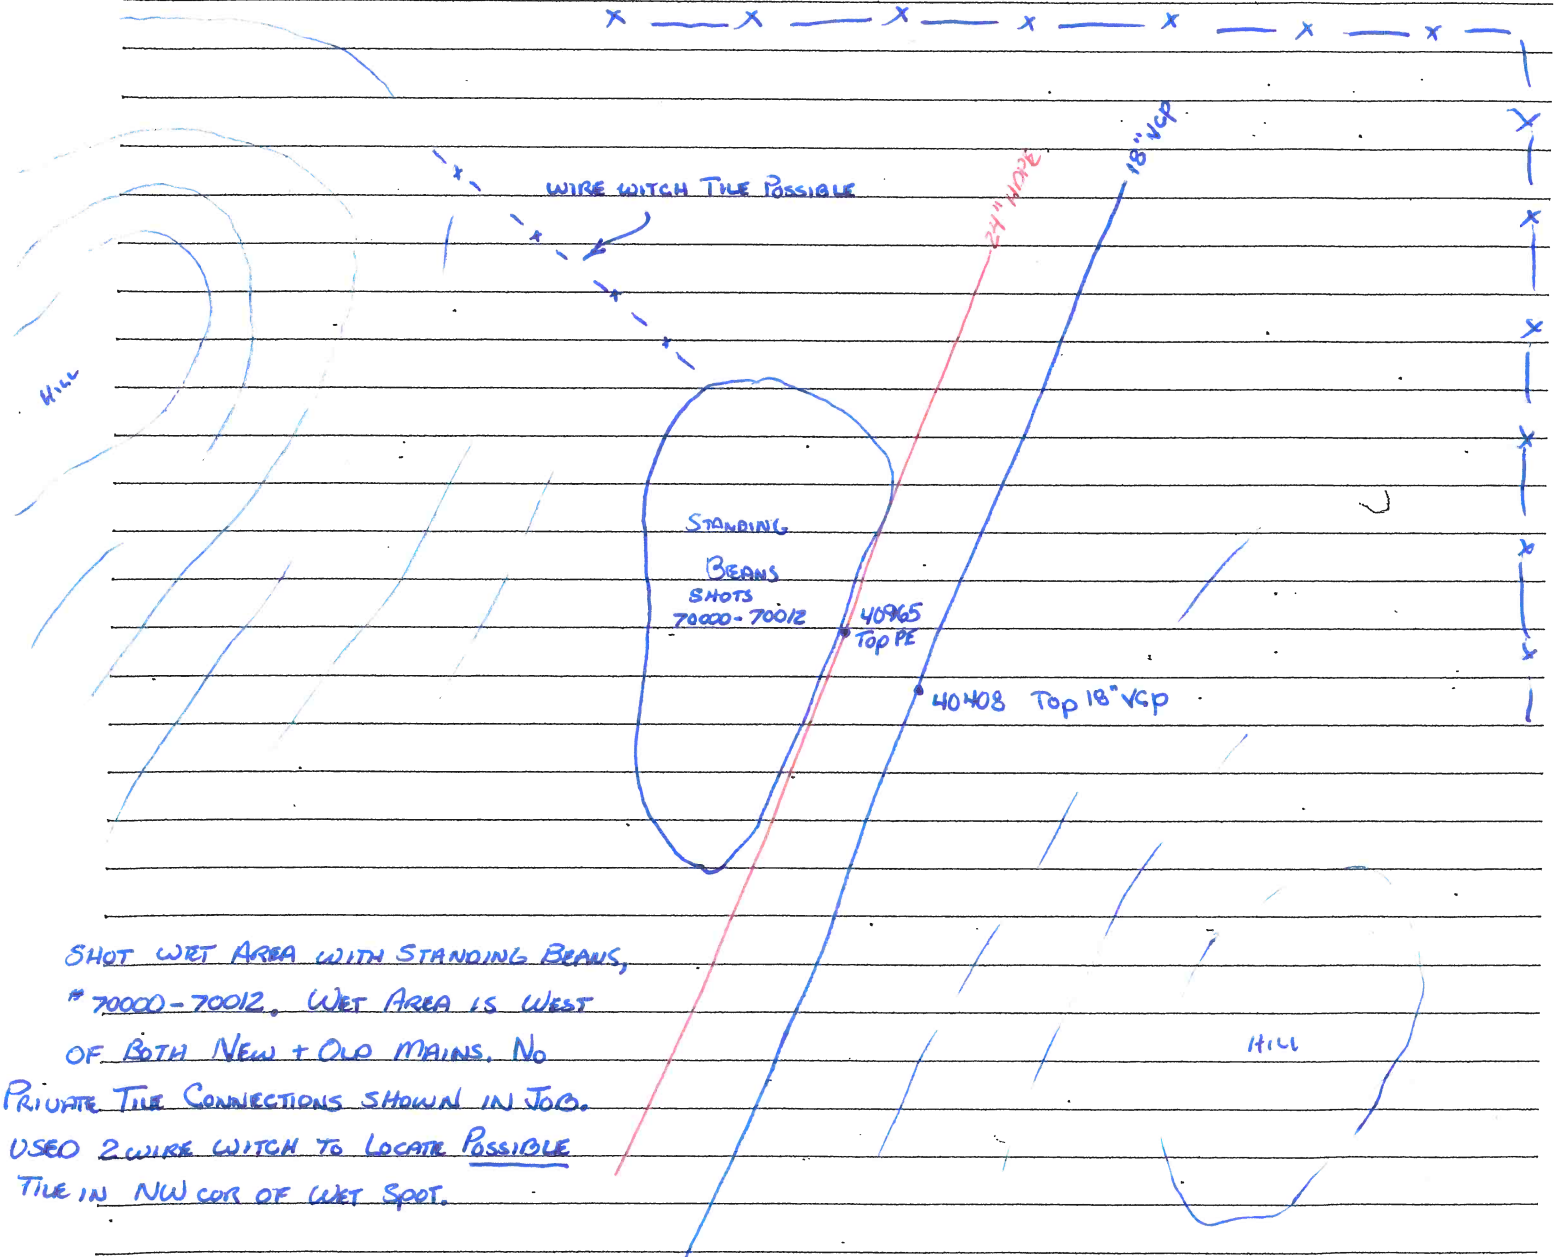 18" VCP
24" HDPE
WIRE WITCH TILE POSSIBLE
HILL
STANDING
BEANS
SHOTS
70000-70012
40965
TOP PE
40408 TOP 18" VCP
HILL
SHOT WET AREA WITH STANDING BEANS,
# 70000-70012. WET AREA IS WEST
OF BOTH NEW + OLD MAINS. NO
PRIVATE TILE CONNECTIONS SHOWN IN JOB.
USED 2 WIRE WITCH TO LOCATE POSSIBLE
TILE IN NW COR OF WET SPOT.